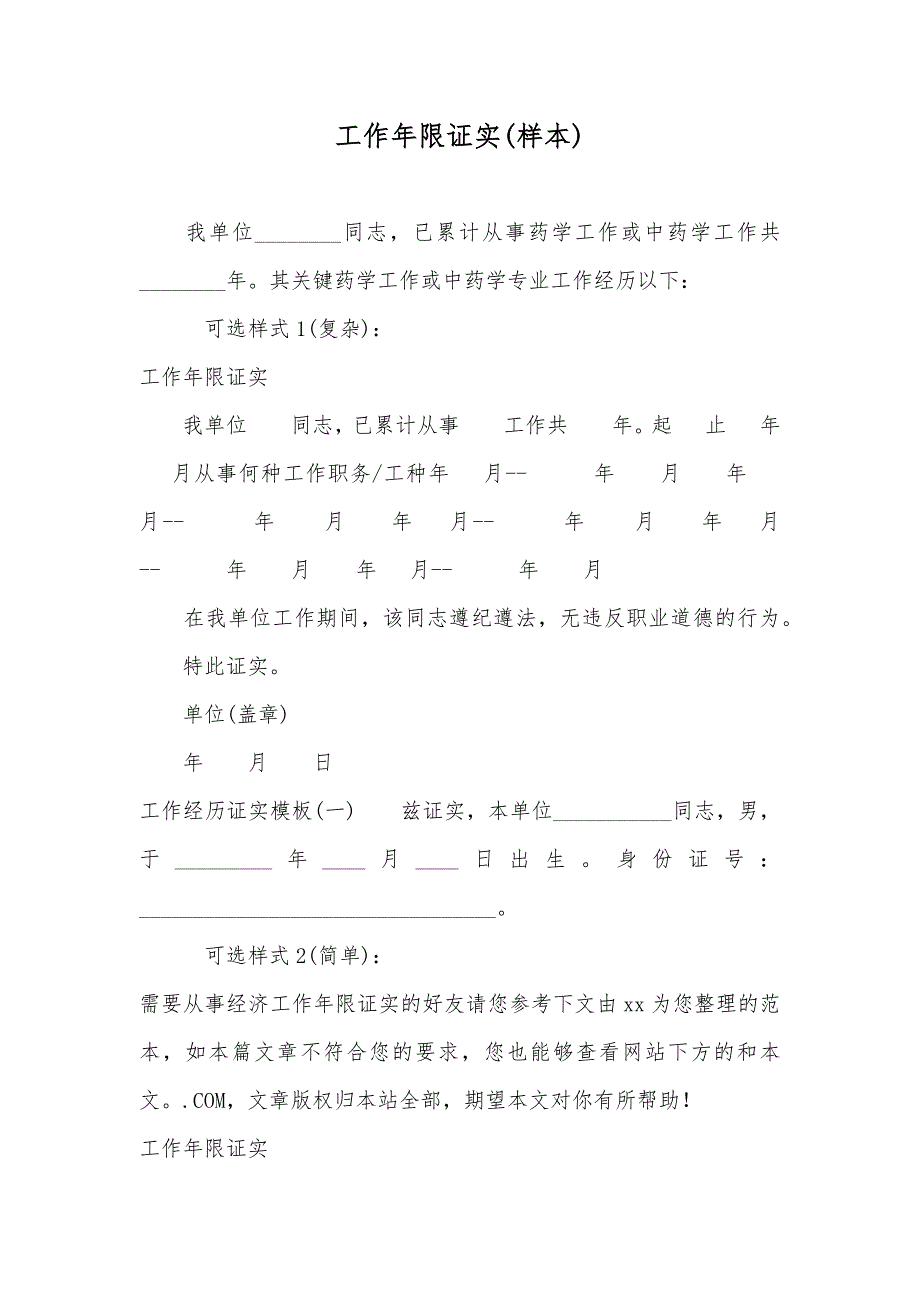 工作年限证实(样本)
我单位________同志，已累计从事药学工作或中药学工作共
________年。其关键药学工作或中药学专业工作经历以下：
可选样式1(复杂)：
工作年限证实
我单位　　同志，已累计从事　　工作共　　年。起　止　年
月从事何种工作职务/工种年　月--　　　年　　月　　年
月--　　　年　　月　　年　月--　　　年　　月　　年　月
--　　　年　　月　　年　月--　　　年　　月
在我单位工作期间，该同志遵纪遵法，无违反职业道德的行为。
特此证实。
单位(盖章)
年　　月　　日
工作经历证实模板(一)　　兹证实，本单位___________同志，男，
于_________年____月____日出生。身份证号：
_________________________________。
可选样式2(简单)：
需要从事经济工作年限证实的好友请您参考下文由xx为您整理的范
本，如本篇文章不符合您的要求，您也能够查看网站下方的和本
文。.COM，文章版权归本站全部，期望本文对你有所帮助！
工作年限证实